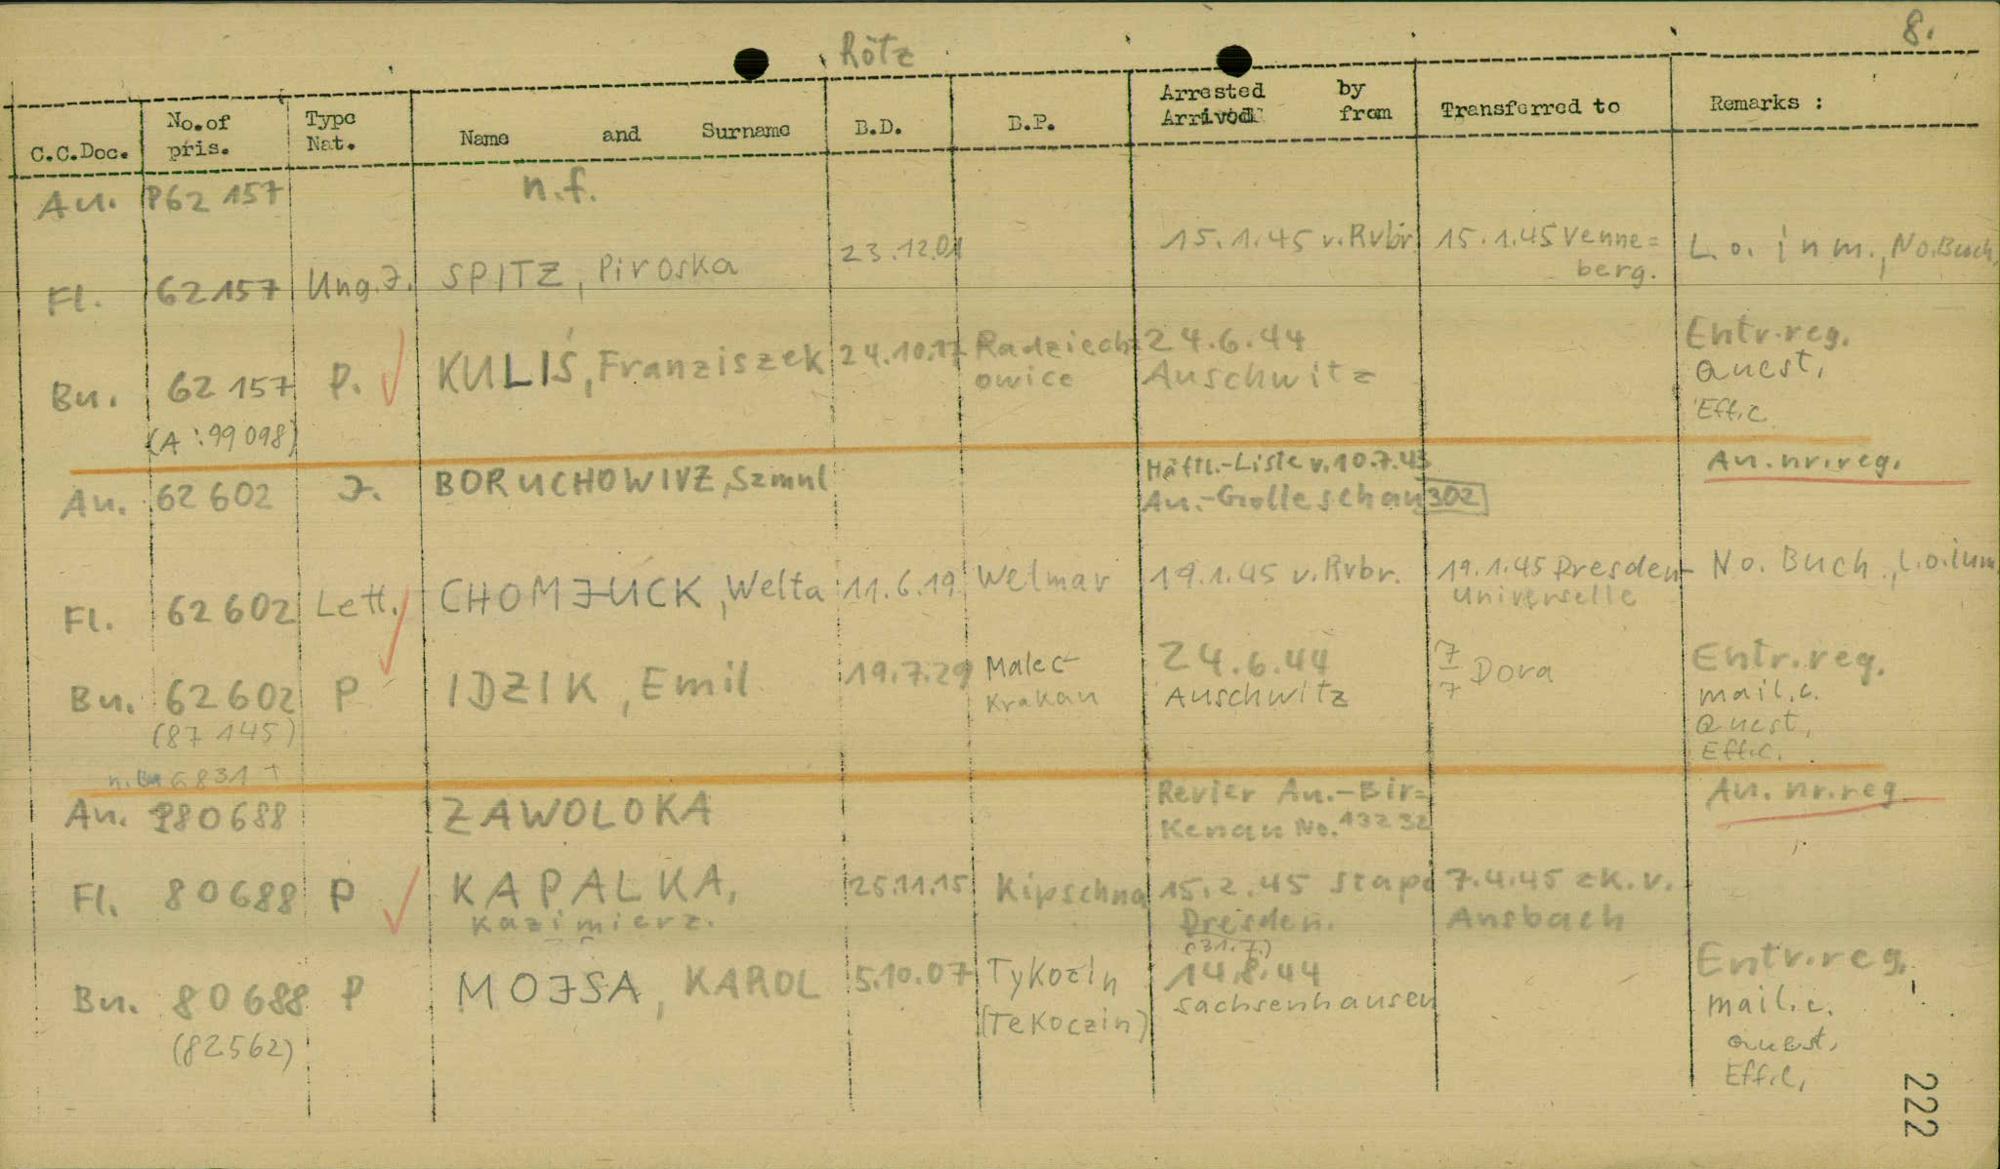 Rötz 8.
C.C.Doc. No.of pris. Type Nat. Name and Surname B.D. B.P. Arrested by Arrived from Transferred to Remarks :
Au. P62 157 n.f.
Fl. 62157 Ung.J. SPITZ, Piroska 23.12.01 15.1.45 v.Rvbr 15.1.45 Venne=
berg. L.o. in m., No.Buch,
Bu. 62 157 P. KULIŚ, Franziszek 24.10.17 Radziech
owice 24.6.44
Auschwitz Entr.reg.
Quest,
Eff.c
(A:99098)
Au. 62602 J. BORUCHOWIVZ, Szmul Häftl.-Liste v.10.7.43
Au.-Golleschau 302 Au.nr.reg.
Fl. 62602 Lett. CHOMJUCK, Welta 11.6.19 Welmar 19.1.45 v.Rvbr. 19.1.45 Dresden-
Universelle No. Buch., L.o.ium
Bu. 62602 P IDZIK, Emil 19.7.29 Malec-
Krakau 24.6.44
Auschwitz 7
7 Dora Entr.reg.
mail.c.
Quest,
Eff.c.
(87 145)
n.Bu 6831 +
Au. 980688 ZAWOLOKA Revier Au.-Bir=
Kenau No.13232 Au. nr.reg
Fl. 80688 P KAPALKA,
Kazimierz. 25.11.15 Kipschna 15.2.45 Stapo
Dresden. 7.4.45 zK.v.
Ansbach
Bu. 80688 P MOJSA, KAROL 5.10.07 Tykozin
(Tekoczin) (31.7.)
14.8.44
Sachsenhausen Entr.reg.
mail.c.
Quest,
Eff.c,
(82562)
222